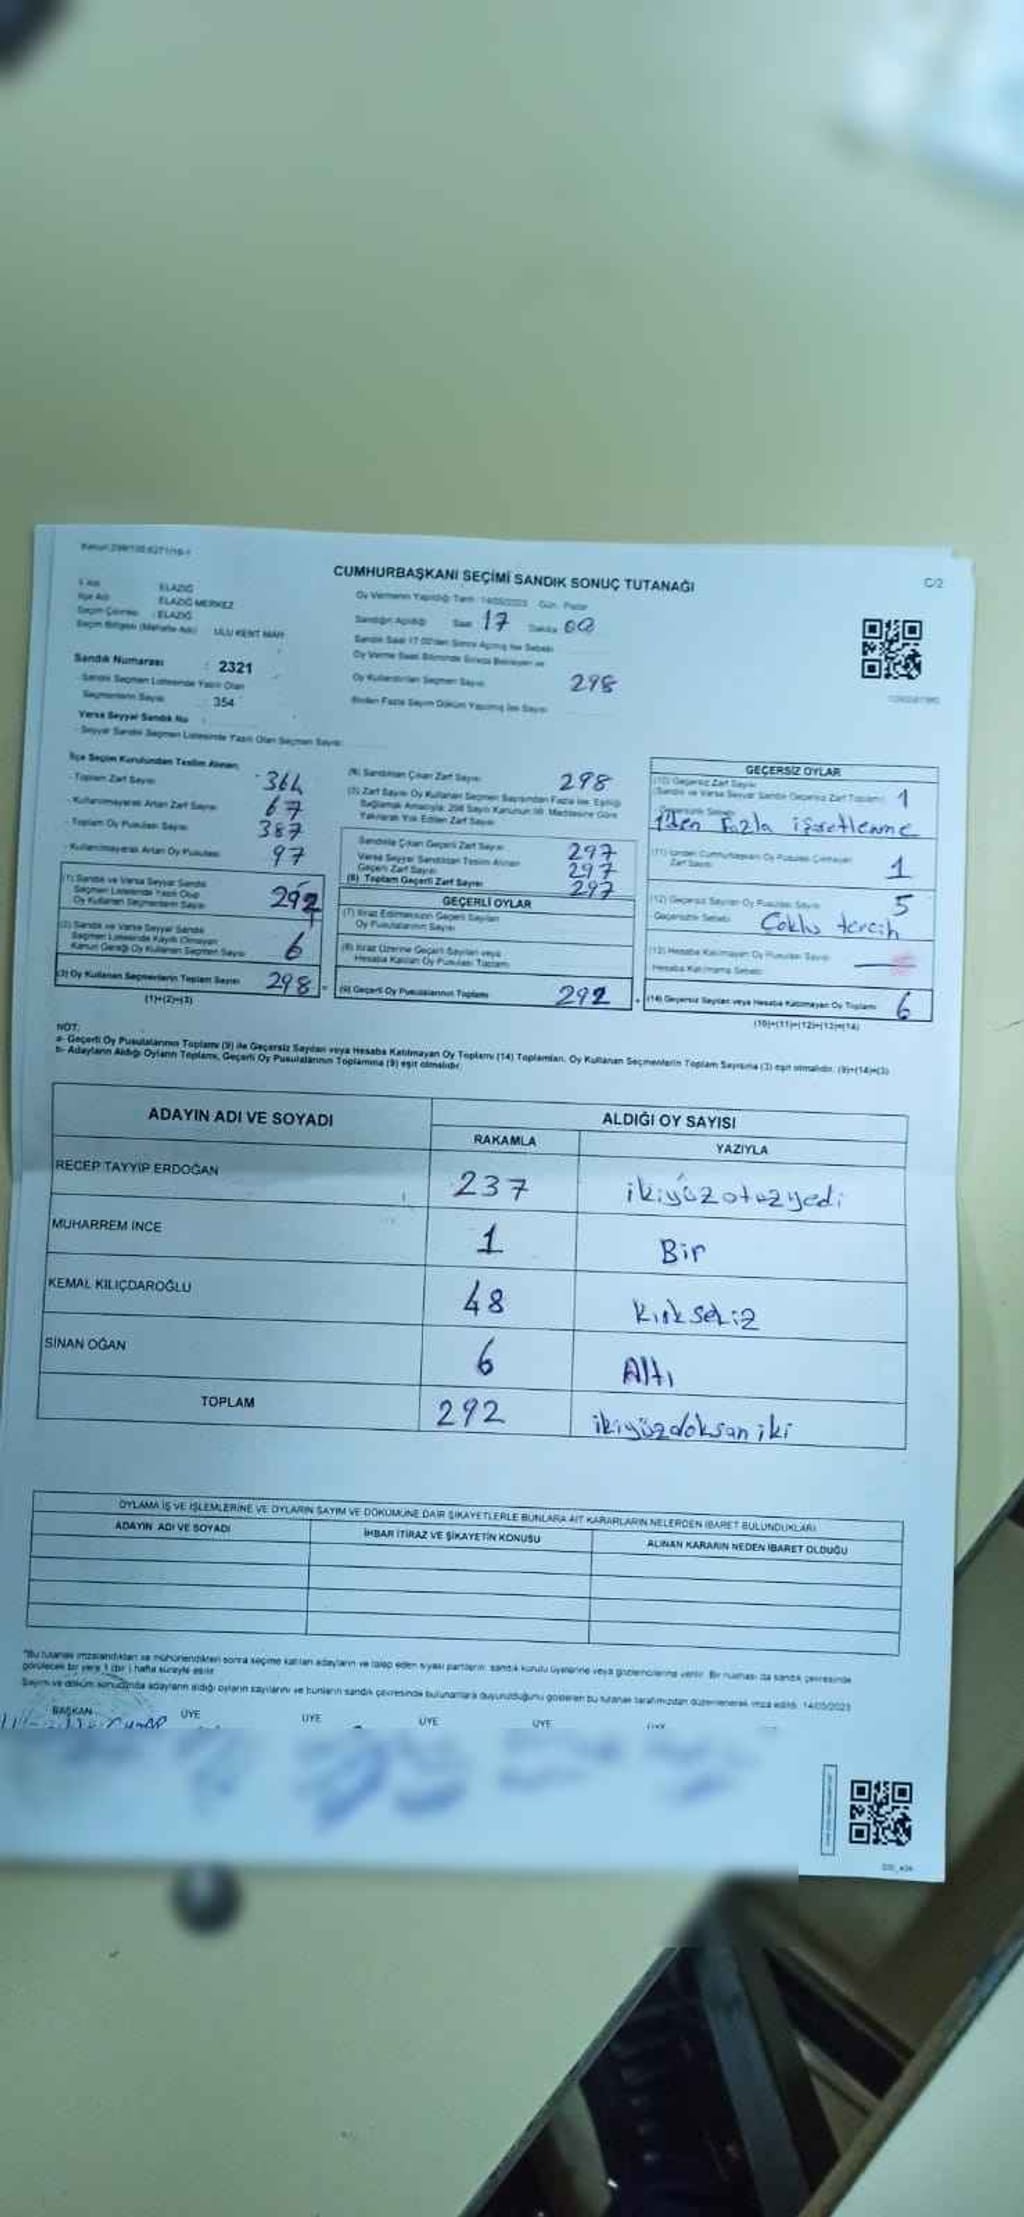 CUMHURBAŞKANI SEÇİMİ SANDIK SONUÇ TUTANAĞI
C/2
İl Adı : ELAZIĞ
İlçe Adı : ELAZIĞ MERKEZ
Seçim Çevresi : ELAZIĞ
Seçim Bölgesi (Mahalle Adı) : ULU KENT MAH
Sandık Numarası : 2321
Sandık Seçmen Listesinde Yazılı Olan
Seçmenlerin Sayısı 354
Varsa Seyyar Sandık No :
Seyyar Sandık Seçmen Listesinde Yazılı Olan Seçmen Sayısı
Oy Vermenin Yapıldığı Tarih : 14/05/2023 Gün : Pazar
Sandığın Açıldığı Saat 17 Dakika 00
Oy Kullandırılan Seçmen Sayısı 298
Birden Fazla Sayım Döküm Yapılmış İse Sayısı
İlçe Seçim Kurulundan Teslim Alınan;
- Toplam Zarf Sayısı 364
- Kullanılmayarak Artan Zarf Sayısı 67
- Toplam Oy Pusulası Sayısı 387
- Kullanılmayarak Artan Oy Pusulası 97
(1) Sandık ve Varsa Seyyar Sandık
Seçmen Listesinde Yazılı Olup
Oy Kullanan Seçmenlerin Sayısı 292
(2) Sandık ve Varsa Seyyar Sandık
Seçmen Listesinde Kayıtlı Olmayan
Kanun Gereği Oy Kullanan Seçmen Sayısı 6
(3) Oy Kullanan Seçmenlerin Toplam Sayısı 298
(1)+(2)=(3)
(4) Sandıktan Çıkan Zarf Sayısı 298
(5) Zarf Sayısı Oy Kullanan Seçmen Sayısından Fazla İse, Eşitliği
Sağlamak Amacıyla; 298 Sayılı Kanunun 98. Maddesine Göre
Yakılarak Yok Edilen Zarf Sayısı
Sandıkta Çıkan Geçerli Zarf Sayısı 297
Varsa Seyyar Sandıktan Teslim Alınan
Geçerli Zarf Sayısı 297
(6) Toplam Geçerli Zarf Sayısı 297
GEÇERLİ OYLAR
(7) İtiraz Edilmeksizin Geçerli Sayılan
Oy Pusulalarının Sayısı
(8) İtiraz Üzerine Geçerli Sayılan veya
Hesaba Katılan Oy Pusulası Toplamı
(9) Geçerli Oy Pusulalarının Toplamı 292
GEÇERSİZ OYLAR
(10) Geçersiz Zarf Sayısı
(Sandık ve Varsa Seyyar Sandık Geçersiz Zarf Toplamı) 1
1'den Fazla işaretleme
(11) İçinden Cumhurbaşkanı Oy Pusulası Çıkmayan
Zarf Sayısı 1
(12) Geçersiz Sayılan Oy Pusulası Sayısı 5
Geçersizlik Sebebi Çoklu tercih
(13) Hesaba Katılmayan Oy Pusulası Sayısı
Hesaba Katılmama Sebebi
(14) Geçersiz Sayılan veya Hesaba Katılmayan Oy Toplamı 6
(10)+(11)+(12)+(13)=(14)
NOT:
a- Geçerli Oy Pusulalarının Toplamı (9) ile Geçersiz Sayılan veya Hesaba Katılmayan Oy Toplamı (14) Toplamları, Oy Kullanan Seçmenlerin Toplam Sayısına (3) eşit olmalıdır. (9)+(14)=(3)
b- Adayların Aldığı Oyların Toplamı, Geçerli Oy Pusulalarının Toplamına (9) eşit olmalıdır.
ADAYIN ADI VE SOYADI
ALDIĞI OY SAYISI
RAKAMLA YAZIYLA
RECEP TAYYİP ERDOĞAN 237 ikiyüzotuzyedi
MUHARREM İNCE 1 Bir
KEMAL KILIÇDAROĞLU 48 Kırksekiz
SİNAN OĞAN 6 Altı
TOPLAM 292 ikiyüzdoksaniki
OYLAMA İŞ VE İŞLEMLERİNE VE OYLARIN SAYIM VE DÖKÜMÜNE DAİR ŞİKAYETLERLE BUNLARA AİT KARARLARIN NELERDEN İBARET BULUNDUKLARI
ADAYIN ADI VE SOYADI İHBAR İTİRAZ VE ŞİKAYETİN KONUSU ALINAN KARARIN NEDEN İBARET OLDUĞU
*Bu tutanak imzalandıktan ve mühürlendikten sonra seçime katılan adayların ve talep eden siyasi partilerin, sandık kurulu üyelerine veya gözlemcilerine verilir. Bir nüshası da sandık çevresinde
görülecek bir yere 1 (bir) hafta süreyle asılır.
Sayım ve döküm sonucunda adayların aldığı oyların sayılarını ve bunların sandık çevresinde bulunanlara duyurulduğunu gösteren bu tutanak tarafımızdan düzenlenerek imza edildi. 14/05/2023
BAŞKAN ÜYE ÜYE ÜYE ÜYE ÜYE